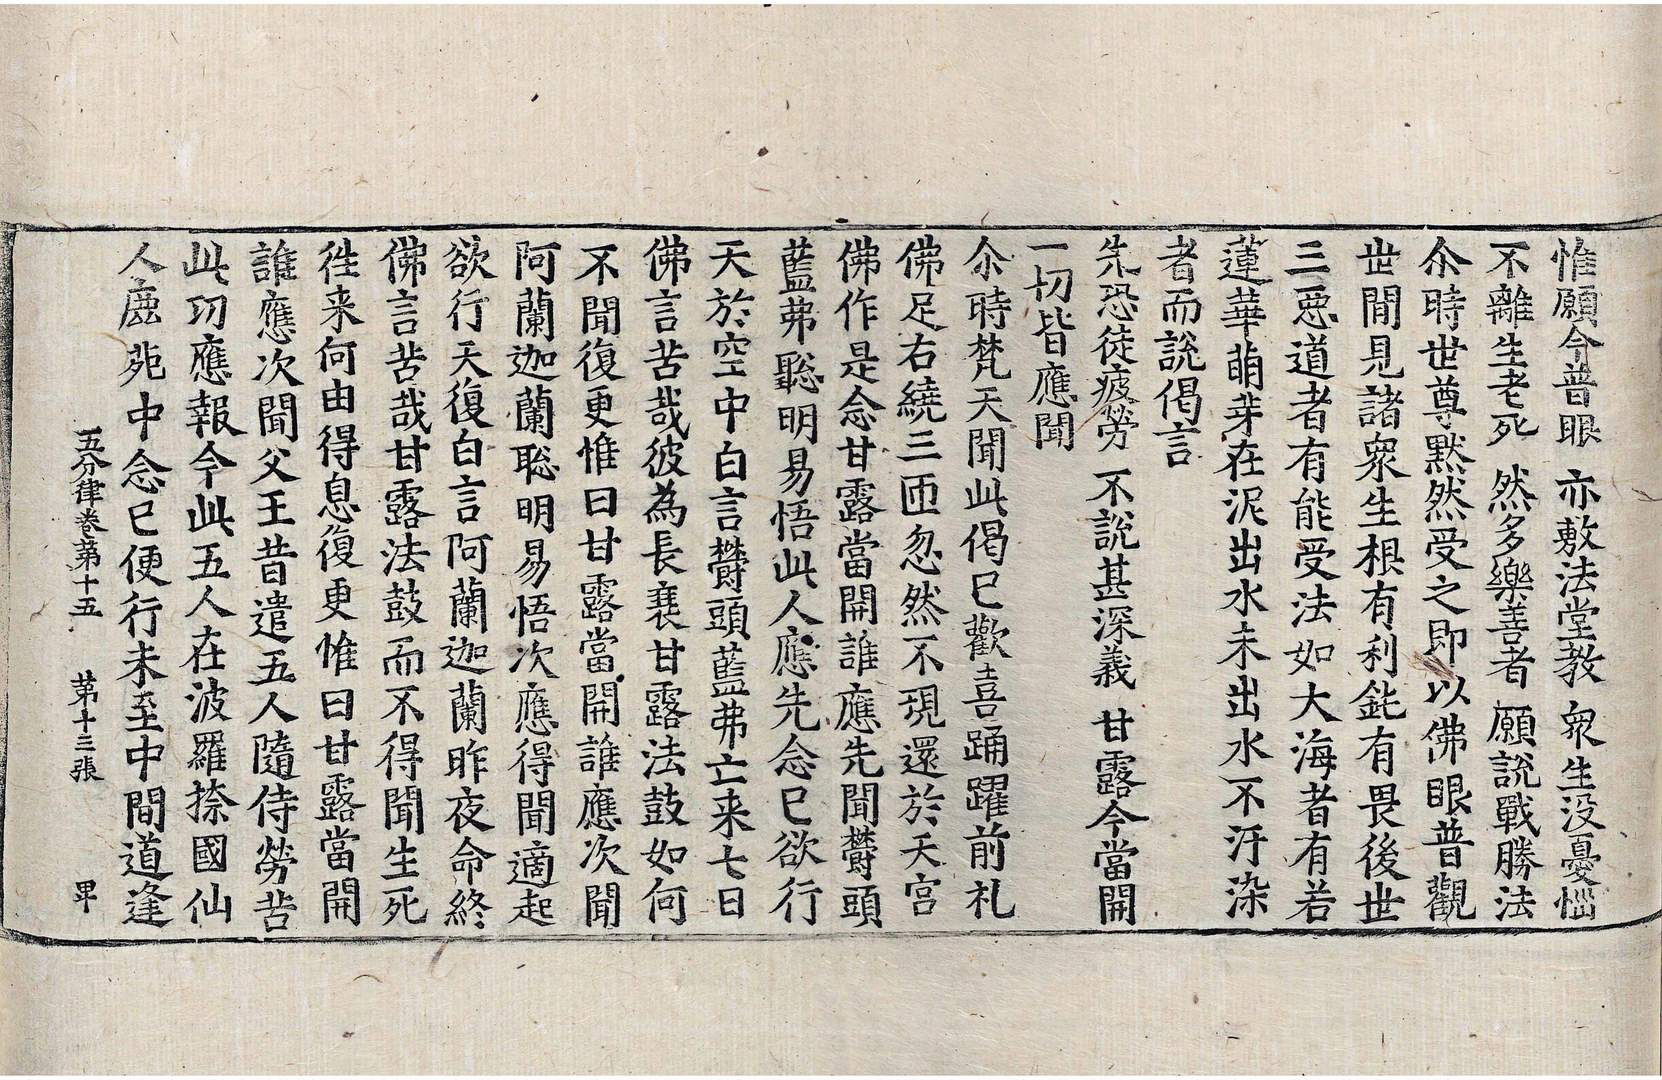 惟願今普眼 亦敷法堂教 衆生没憂惱
不離生老死 然多樂善者 願說戰勝法
尒時世尊默然受之即以佛眼普觀
世間見諸衆生根有利鈍有畏後世
三惡道者有能受法如大海者有若
蓮華萌芽在泥出水未出水不汙染
者而說偈言
先恐徒疲勞 不說甚深義 甘露今當開
一切皆應聞
尒時梵天聞此偈已歡喜踊躍前礼
佛足右繞三匝忽然不現還於天宮
佛作是念甘露當開誰應先聞欝頭
藍弗聡明易悟此人應先念已欲行
天於空中白言欝頭藍弗亡来七日
佛言苦哉彼為長衰甘露法鼓如何
不聞復更惟曰甘露當開誰應次聞
阿蘭迦蘭聡明易悟次應得聞適起
欲行天復白言阿蘭迦蘭昨夜命終
佛言苦哉甘露法鼓而不得聞生死
徃来何由得息復更惟曰甘露當開
誰應次聞父王昔遣五人隨侍勞苦
此功應報今此五人在波羅捺國仙
人鹿苑中念已便行未至中間道逢
五分律卷第十五 第十三張 畢